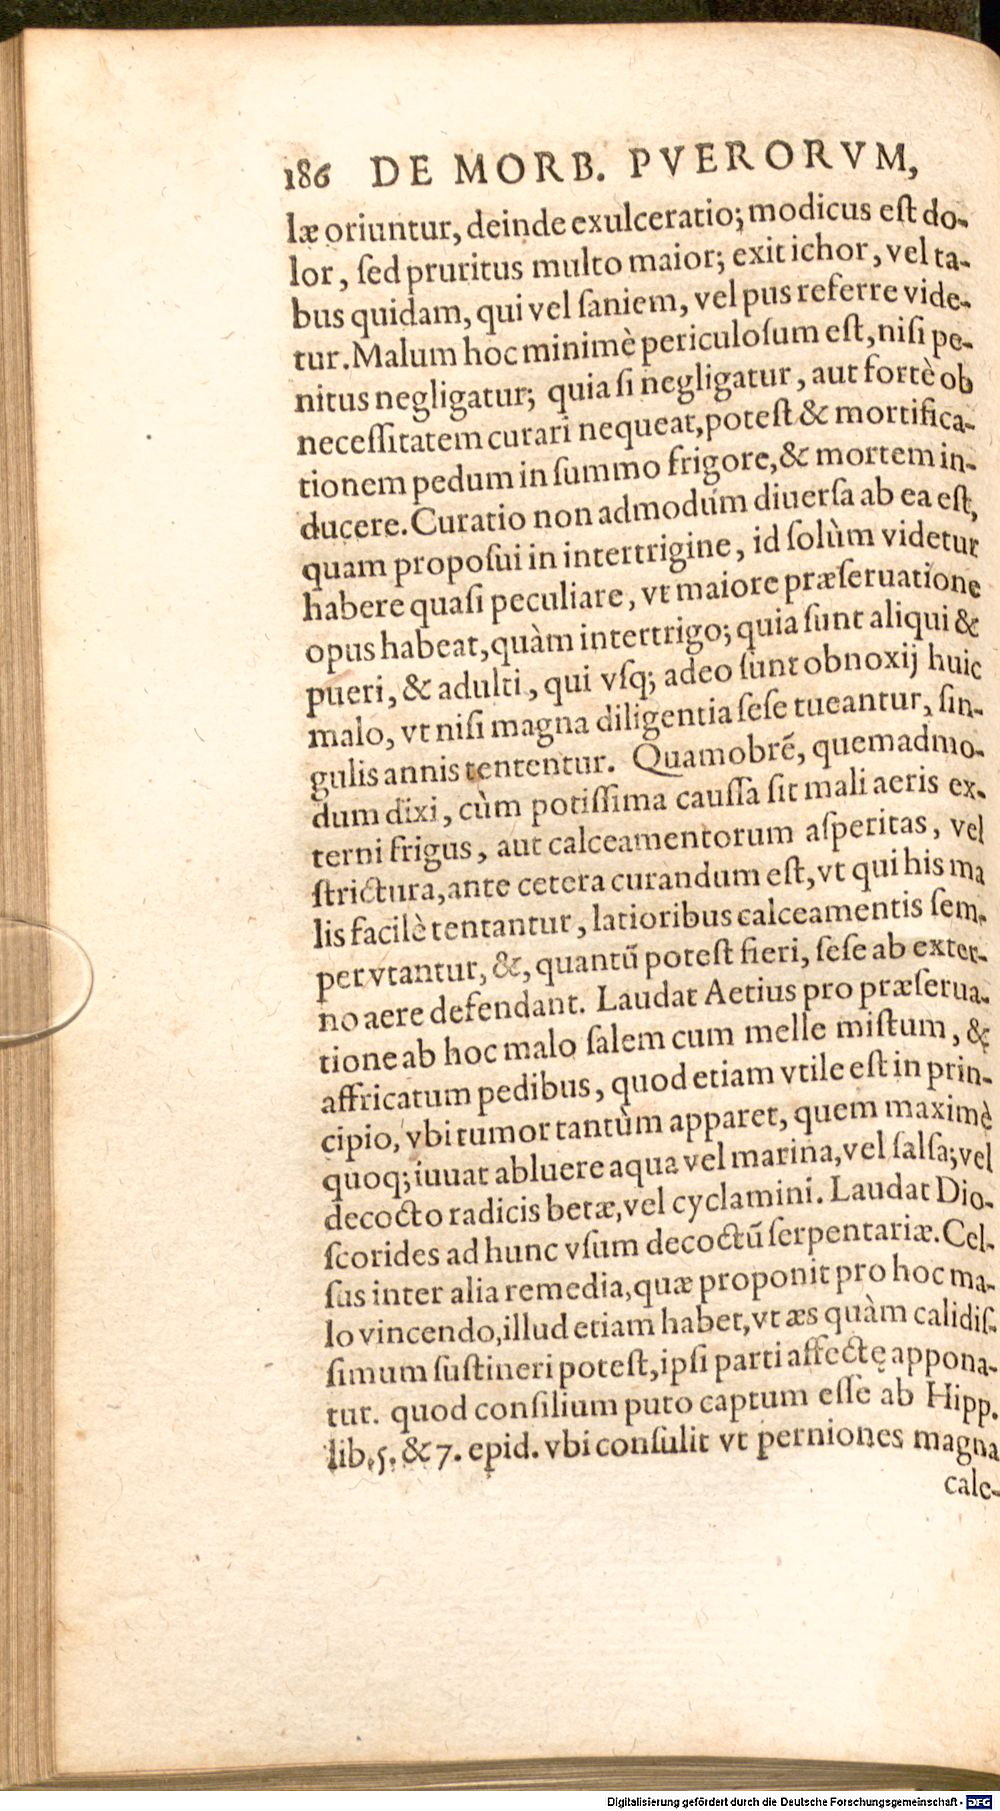 186 DE MORB. PVERORVM,
læ oriuntur, deinde exulceratio; modicus eſt do-
lor, ſed pruritus multo maior; exit ichor, vel ta-
bus quidam, qui vel ſaniem, vel pus referre vide-
tur. Malum hoc minimè periculoſum eſt, niſi pe-
nitus negligatur; quia ſi negligatur, aut fortè ob
neceſſitatem curari nequeat, poteſt & mortifica-
tionem pedum in ſummo frigore, & mortem in-
ducere. Curatio non admodum diuerſa ab ea eſt,
quam propoſui in intertrigine, id ſolùm videtur
habere quaſi peculiare, vt maiore præſeruatione
opus habeat, quàm intertrigo; quia ſunt aliqui &
pueri, & adulti, qui vſq; adeo ſunt obnoxij huic
malo, vt niſi magna diligentia ſeſe tueantur, ſin-
gulis annis tententur. Quamobrē, quemadmo-
dum dixi, cùm potiſſima cauſſa ſit mali aeris ex-
terni frigus, aut calceamentorum aſperitas, vel
ſtrictura, ante cetera curandum eſt, vt qui his ma
lis facilè tentantur, latioribus calceamentis ſem-
per vtantur, &, quantũ poteſt fieri, ſeſe ab exter-
no aere defendant. Laudat Aetius pro præſerua-
tione ab hoc malo ſalem cum melle miſtum, &
affricatum pedibus, quod etiam vtile eſt in prin-
cipio, vbi tumor tantùm apparet, quem maximè
quoq; iuuat abluere aqua vel marina, vel ſalſa; vel
decocto radicis betæ, vel cyclamini. Laudat Dio-
ſcorides ad hunc vſum decoctũ ſerpentariæ. Cel-
ſus inter alia remedia, quæ proponit pro hoc ma-
lo vincendo, illud etiam habet, vt æs quàm calidiſ-
ſimum ſuſtineri poteſt, ipſi parti affectę appona-
tur. quod conſilium puto captum eſſe ab Hipp.
lib. 5. & 7. epid. vbi conſulit vt perniones magna
cale-
Digitalisierung gefördert durch die Deutsche Forschungsgemeinschaft - DFG